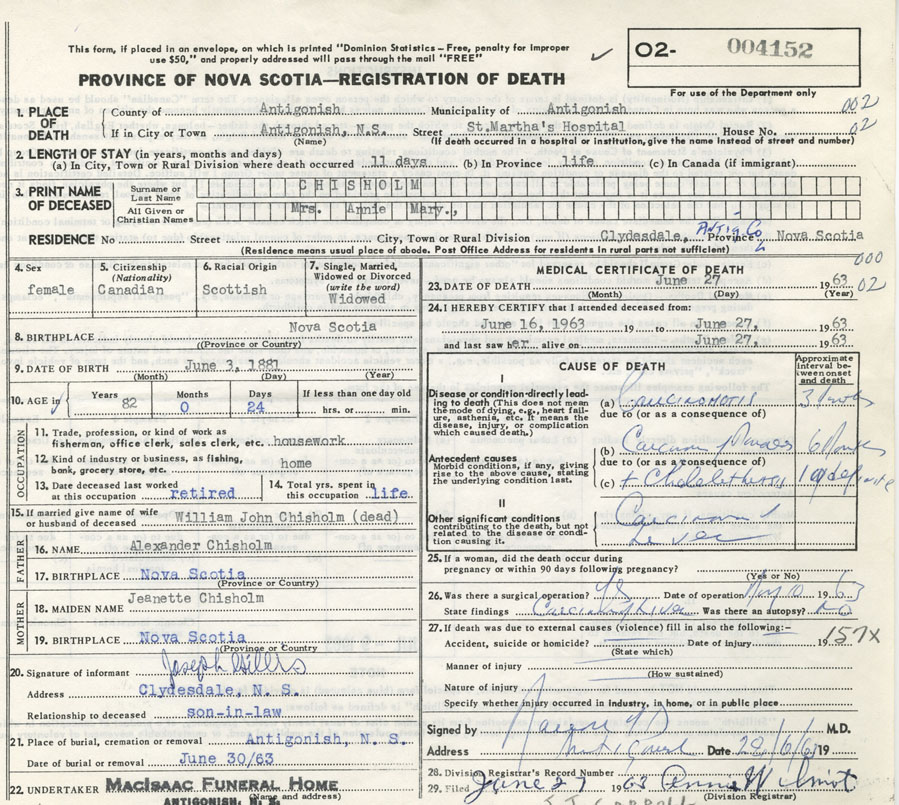 This form, if placed in an envelope, on which is printed "Dominion Statistics—Free, penalty for improper
use $50," and properly addressed will pass through the mail "FREE"
✓
O2- 004152
For use of the Department only
PROVINCE OF NOVA SCOTIA—REGISTRATION OF DEATH
1. PLACE OF DEATH
County of Antigonish Municipality of Antigonish 002
If in City or Town Antigonish, N.S. Street St.Martha's Hospital House No. 02
(Name) (If death occurred in a hospital or institution, give the name instead of street and number)
2. LENGTH OF STAY (in years, months and days)
(a) In City, Town or Rural Division where death occurred 11 days (b) In Province life (c) In Canada (if immigrant)
3. PRINT NAME OF DECEASED
Surname or Last Name CHISHOLM
All Given or Christian Names Mrs. Annie Mary.,
RESIDENCE No Street City, Town or Rural Division Clydesdale, Antig Co Province Nova Scotia
(Residence means usual place of abode. Post Office Address for residents in rural parts not sufficient)
000
4. Sex female
5. Citizenship (Nationality) Canadian
6. Racial Origin Scottish
7. Single, Married, Widowed or Divorced (write the word) Widowed
8. BIRTHPLACE Nova Scotia
((Province or Country)
9. DATE OF BIRTH June 3, 1881
(Month) (Day) (Year)
10. AGE in Years 82 Months 0 Days 24 If less than one day old hrs. or min.
OCCUPATION
11. Trade, profession, or kind of work as fisherman, office clerk, sales clerk, etc. housework
12. Kind of industry or business, as fishing, bank, grocery store, etc. home
13. Date deceased last worked at this occupation retired
14. Total yrs. spent in this occupation life
15. If married give name of wife or husband of deceased William John Chisholm (dead)
FATHER
16. NAME Alexander Chisholm
17. BIRTHPLACE Nova Scotia
(Province or Country)
MOTHER
18. MAIDEN NAME Jeanette Chisholm
19. BIRTHPLACE Nova Scotia
(Province or Country
20. Signature of informant Joseph Gillis
Address Clydesdale, N. S.
Relationship to deceased son-in-law
21. Place of burial, cremation or removal Antigonish, N. S.
Date of burial or removal June 30/63
22. UNDERTAKER MacIsaac Funeral Home
ANTIGONISH, N. S. (Name and address)
MEDICAL CERTIFICATE OF DEATH
23. DATE OF DEATH June 27 1963 02
(Month) (Day) (Year)
24. I HEREBY CERTIFY that I attended deceased from:
June 16, 1963 19 to June 27, 1963
and last saw her alive on June 27, 1963
CAUSE OF DEATH
Approximate interval between onset and death
I
Disease or condition-directly leading to death (This does not mean the mode of dying, e.g., heart failure, asthenia, etc. It means the disease, injury, or complication which caused death.)
(a) Carcinomatosis 3
due to (or as a consequence of)
Antecedent causes
Morbid conditions, if any, giving rise to the above cause, stating the underlying condition last.
(b) Carcinoma 6
due to (or as a consequence of)
(c)
II
Other significant conditions
contributing to the death, but not related to the disease or condition causing it.
Carcinoma
Liver
25. If a woman, did the death occur during pregnancy or within 90 days following pregnancy?
(Yes or No)
26. Was there a surgical operation? Yes Date of operation May 10 1963
State findings Carcinoma Liver Was there an autopsy? No
27. If death was due to external causes (violence) fill in also the following:—
Accident, suicide or homicide? Date of injury 19 157X
(State which)
Manner of injury
(How sustained)
Nature of injury
Specify whether injury occurred in Industry, in home, or in public place
Signed by M.D.
Address Antigonish Date 28/6/6 19
28. Division Registrar's Record Number
29. Filed June 27 1963 Anna Wilmot
(Division Registrar)